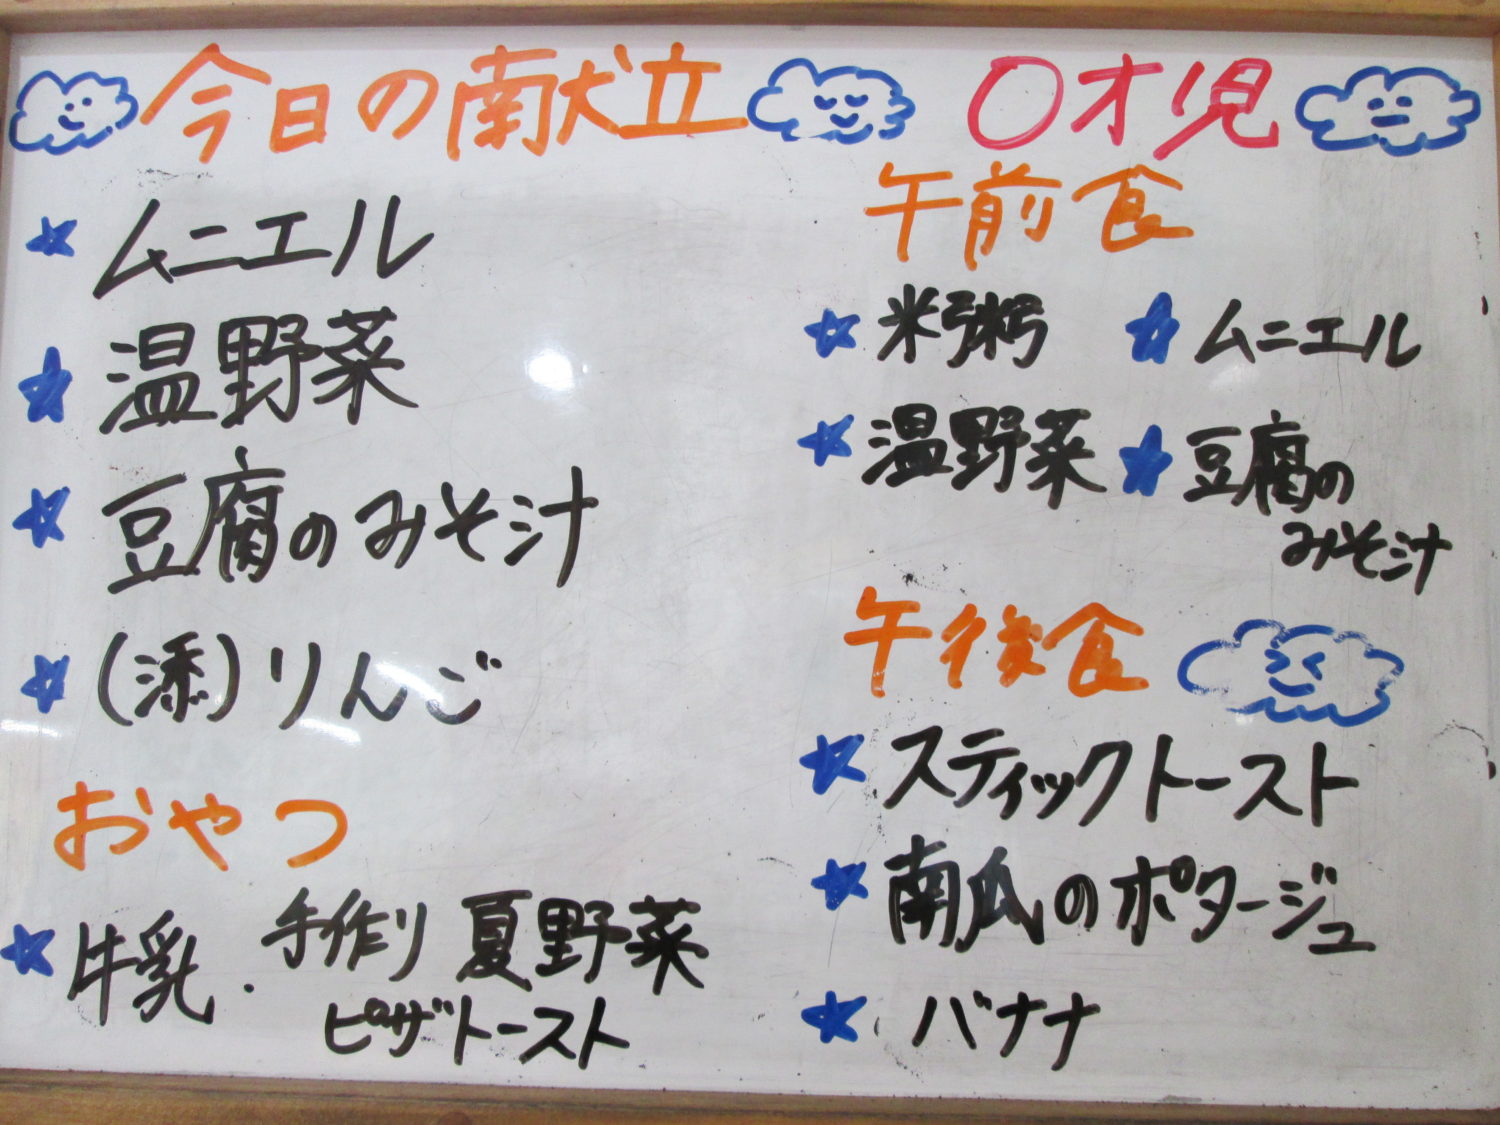 今日の献立
ムニエル
温野菜
豆腐のみそ汁
(添)りんご
おやつ
牛乳・手作り 夏野菜
ピザトースト
〇才児
午前食
米粥
ムニエル
温野菜
豆腐の
みそ汁
午後食
スティックトースト
南瓜のポタージュ
バナナ